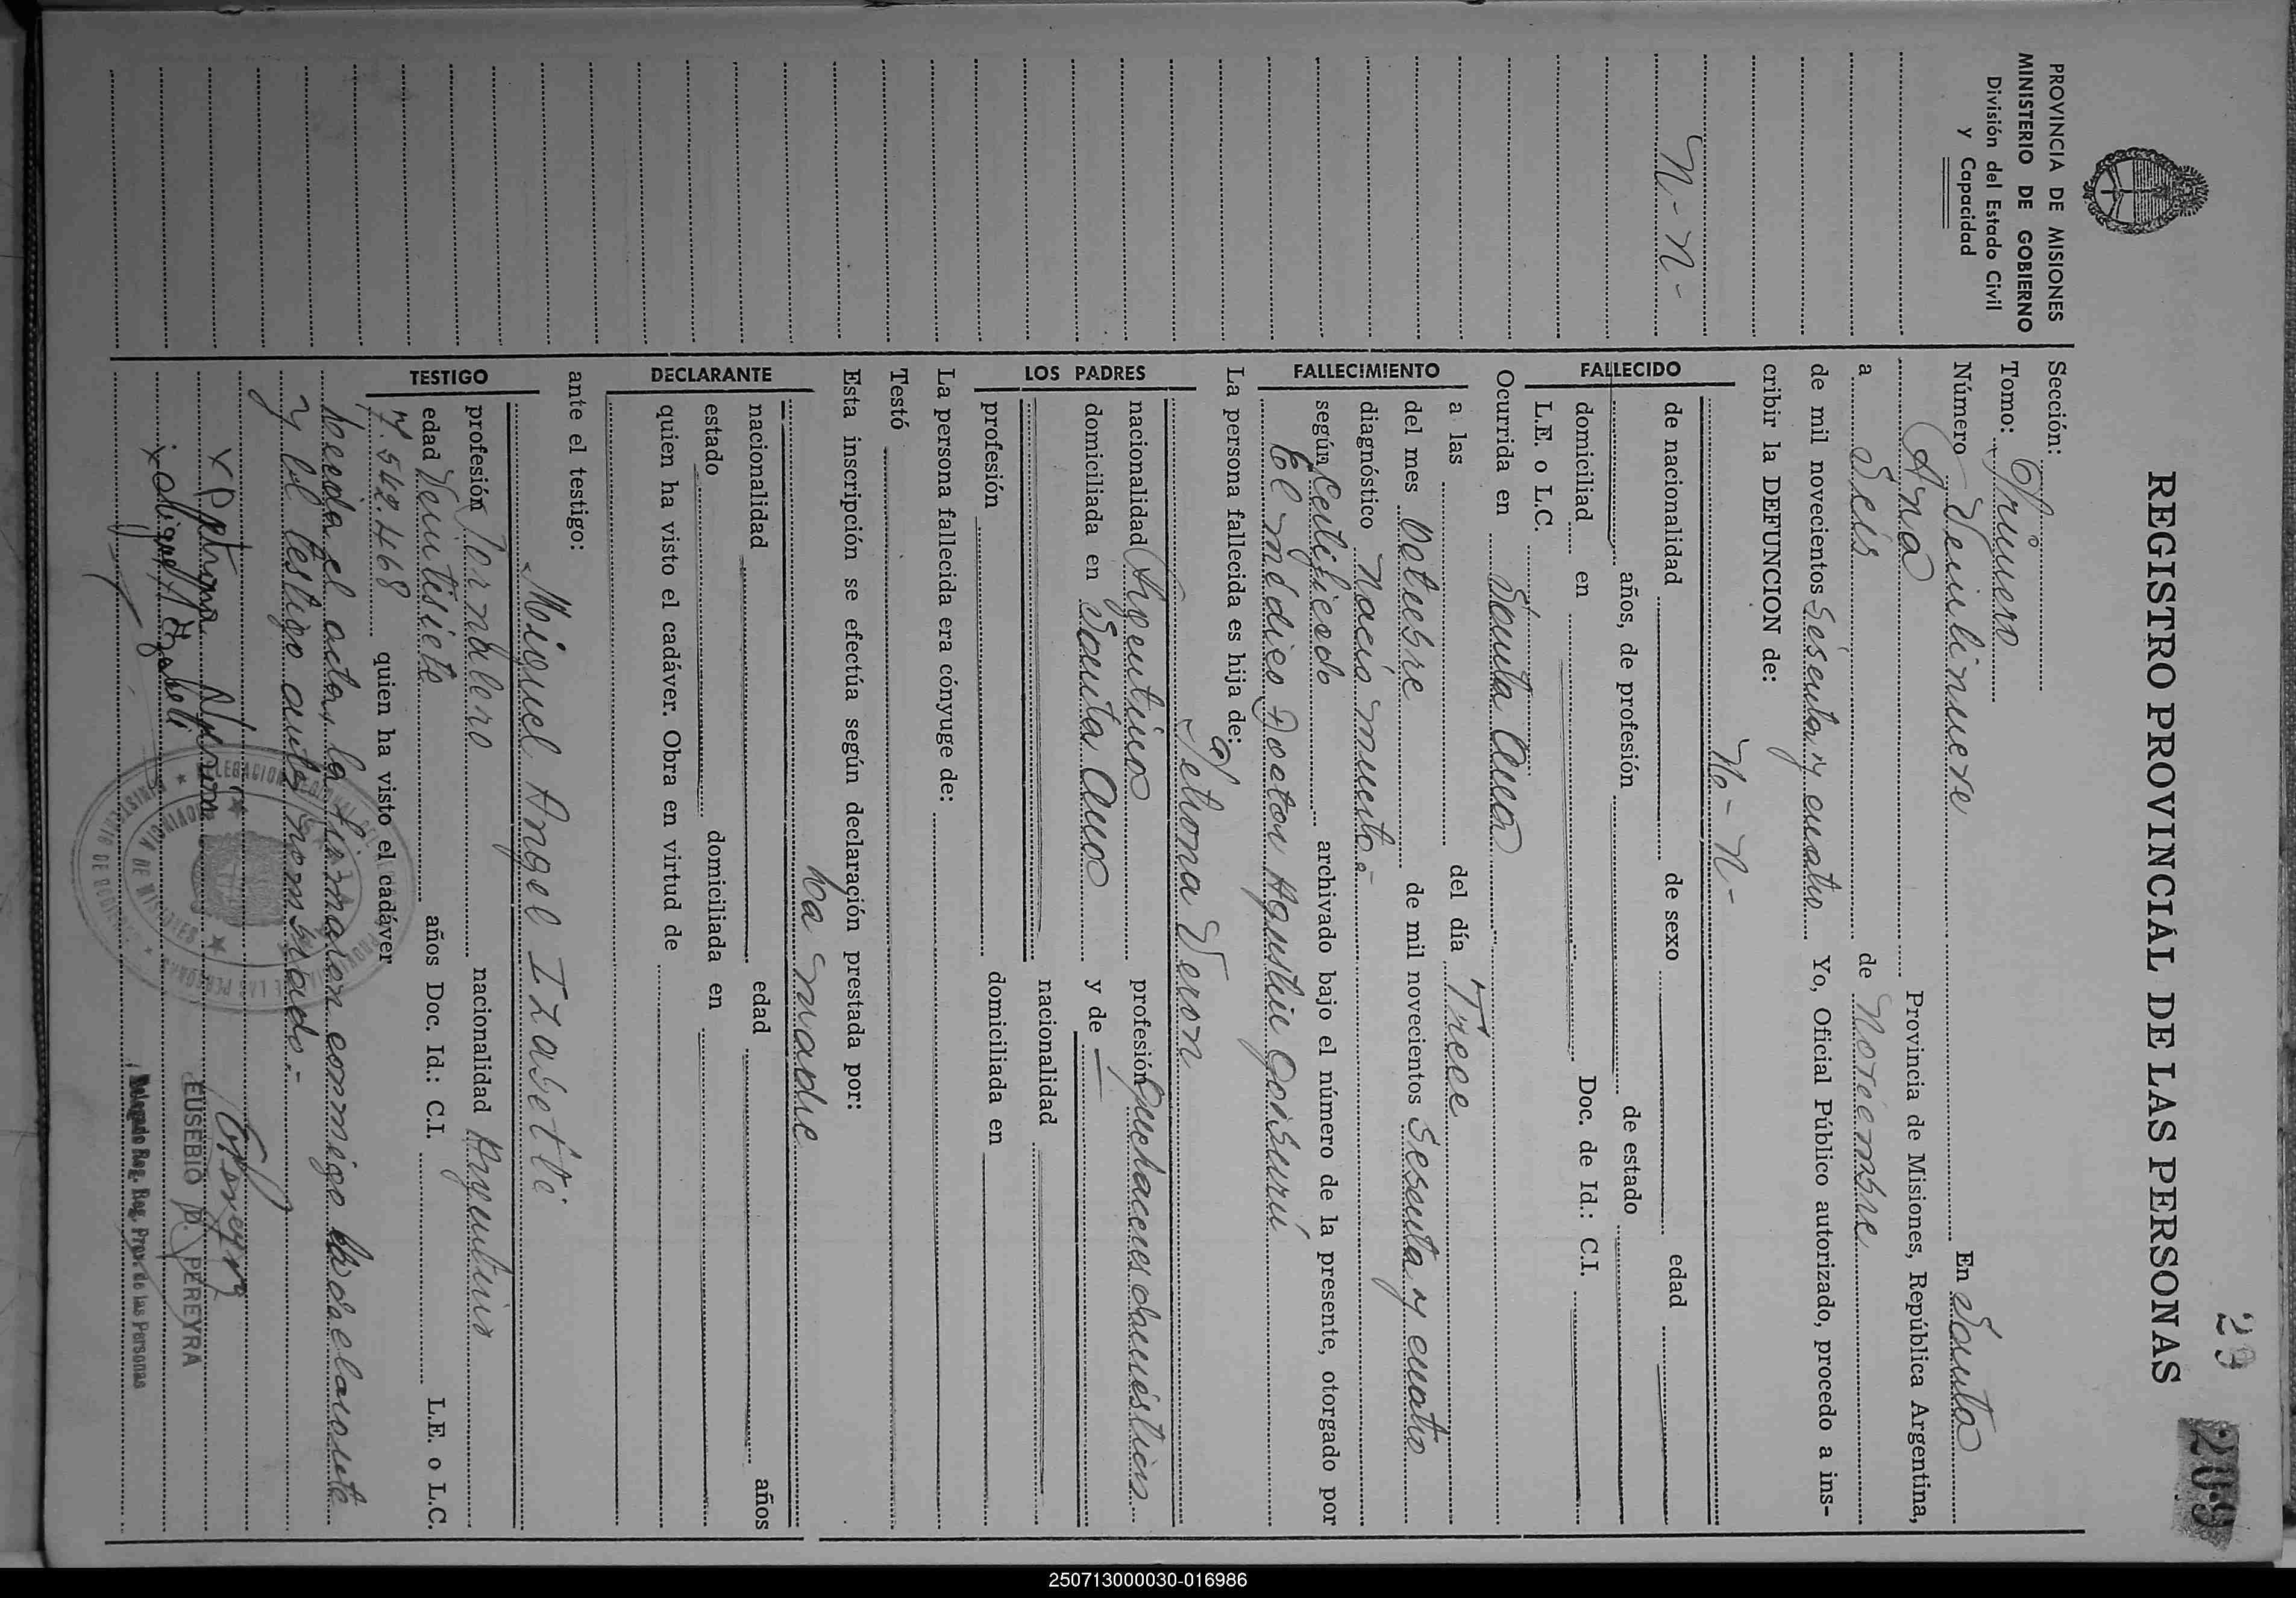 29
209
REGISTRO PROVINCIAL DE LAS PERSONAS
PROVINCIA DE MISIONES
MINISTERIO DE GOBIERNO
División del Estado Civil
y Capacidad
N.-N.-
Sección:
Tomo: Primero
Número Veintinueve En Santa
Ana Provincia de Misiones, República Argentina,
a Seis de Noviembre
de mil novecientos Sesenta y cuatro Yo, Oficial Público autorizado, procedo a ins-
cribir la DEFUNCION de:
N.-N.-
FALLECIDO
de nacionalidad de sexo edad
años, de profesión de estado
domiciliad en Doc. de Id.: C.I.
L.E. o L.C.
Ocurrida en Santa Ana
FALLECIMIENTO
a las del día Trece
del mes Octubre de mil novecientos Sesenta y cuatro
diagnóstico Nació muerto.-
según Certificado archivado bajo el número de la presente, otorgado por
El médico Doctor
La persona fallecida es hija de:
LOS PADRES
Petrona Veron
nacionalidad Argentina profesión Quehaceres domésticos
domiciliada en Santa Ana y de —
nacionalidad
profesión domiciliada en
La persona fallecida era cónyuge de:
Testó
Esta inscripción se efectúa según declaración prestada por:
La madre
DECLARANTE
nacionalidad edad años
estado domiciliada en
quien ha visto el cadáver. Obra en virtud de
ante el testigo:
Miguel Angel Izabetti
TESTIGO
profesión Jornalero nacionalidad Argentino
edad Veintisiete años Doc. Id.: C.I. L.E. o L.C.
7.542.468 quien ha visto el cadáver
Leida el acta, la firmaron conmigo la declarante
y el testigo antes nombrado.-
x Petrona Veron
x Miguel A Izabetti
EUSEBIO D. PEREYRA
Delegado Reg. Reg. Prov. de las Personas
250713000030-016986